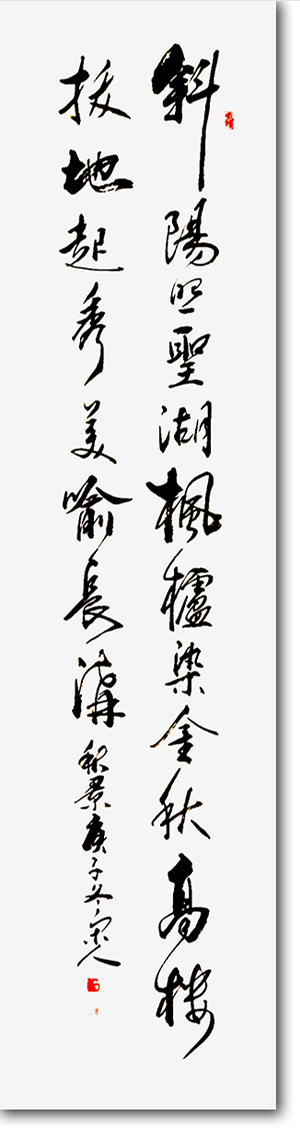 斜陽照聖湖楓櫨染金秋高樓
拔地起秀美喻長溝秋景庚子冬人